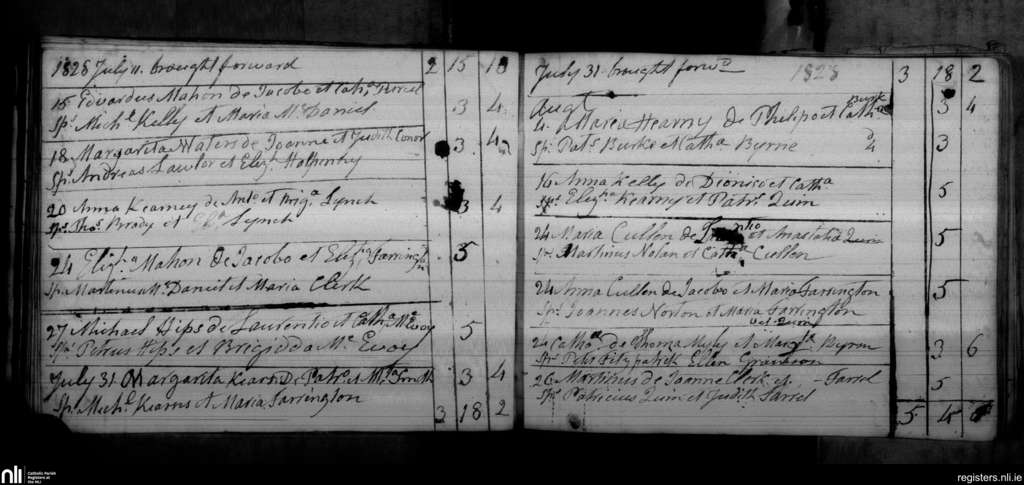 1828 July 11. brought forward 2 15 10
15 Edvardus Mahon de Jacobo et Cath.a
Sp.s Mich.l Kelly et Maria Mc Daniel 3 4
18 Margarita Waters de Joanne et Judith Conor
Sp.s Andreas Lawlor et Eliz. 3 4
20 Anna Kearney de Ant.o et Brig.a Lynch
Sp.s Tho.s Brady et Lynch 3 4
24 Eliz.a Mahon de Jacobo et Eliz.a Farrington
Sp.s Martinus Mc Daniel et Maria Clerk 5
27 Michael Hips de Laurentio et Cath.a McEvoy
Sp.s Petrus Hips et Brigidda Mc Evoy 5
July 31 Margarita Kearns De Pat.o et M.a Smith 3 4
Sp.s Mich.l Kearns et Maria Farrington
3 18 2
July 31 brought for.d 1828 3 18 2
Aug.t 3 4
Burk
4. Maria Hearny de Philipo et Cath.a
Sp.s Pat.s Burke et Cath.a Byrne 3
16 Anna Kelly de Dionisio et Cath.a
Sp.s Eliz.a Kearny et Pat.s Quin 5
24 Maria Cullen de et Anastatia Quin
Sp.s Martinus Nolan et Cath.a Cullen 5
24 Anna Cullen de Jacobo et Maria Farrington
Sp.s Joannes Norton et Maria Farrington 5
24 Cath.a de Thoma et Byron
Sp.s Peter Fitzpatrick Ellen 3 6
26 Martinus de Joanne Clerk et - Farrel
Sp.s Patricius Quin et Judith Farrel 5
5 4
nli
Catholic Parish
Registers at
the NLI
registers.nli.ie